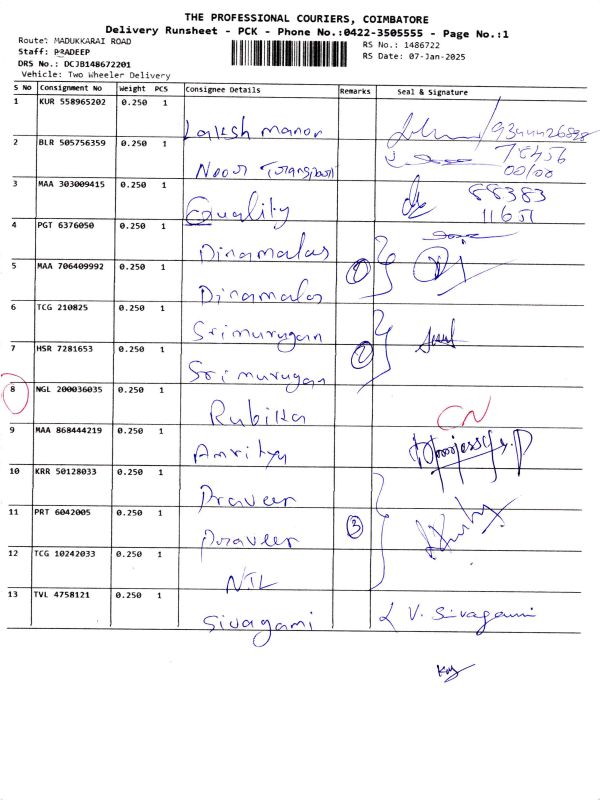 THE PROFESSIONAL COURIERS, COIMBATORE
Delivery Runsheet - PCK - Phone No.:0422-3505555 - Page No.:1
Route: MADUKKARAI ROAD
RS No.: 1486722
Staff: PRADEEP
RS Date: 07-Jan-2025
DRS No.: DCJB148672201
Vehicle: Two Wheeler Delivery
S No Consignment No Weight PCS Consignee Details Remarks Seal & Signature
1 KUR 558965202 0.250 1
Laksh manor
2 BLR 505756359 0.250 1
Noor
3 MAA 303009415 0.250 1 88383
Quality 11651
4 PGT 6376050 0.250 1
Dinamalar
5 MAA 706409992 0.250 1 1
Dinamalar
6 TCG 210825 0.250 1
Srimurugan
7 HSR 7281653 0.250 1 2
Srimurugan
8 NGL 200036035 0.250 1
Rubika CN
9 MAA 868444219 0.250 1
Amrithu
10 KRR 50128033 0.250 1
Praveer
11 PRT 6042005 0.250 1 3
Praveer
12 TCG 10242033 0.250 1
NIL
13 TVL 4758121 0.250 1
Sivagami V. Sivagami